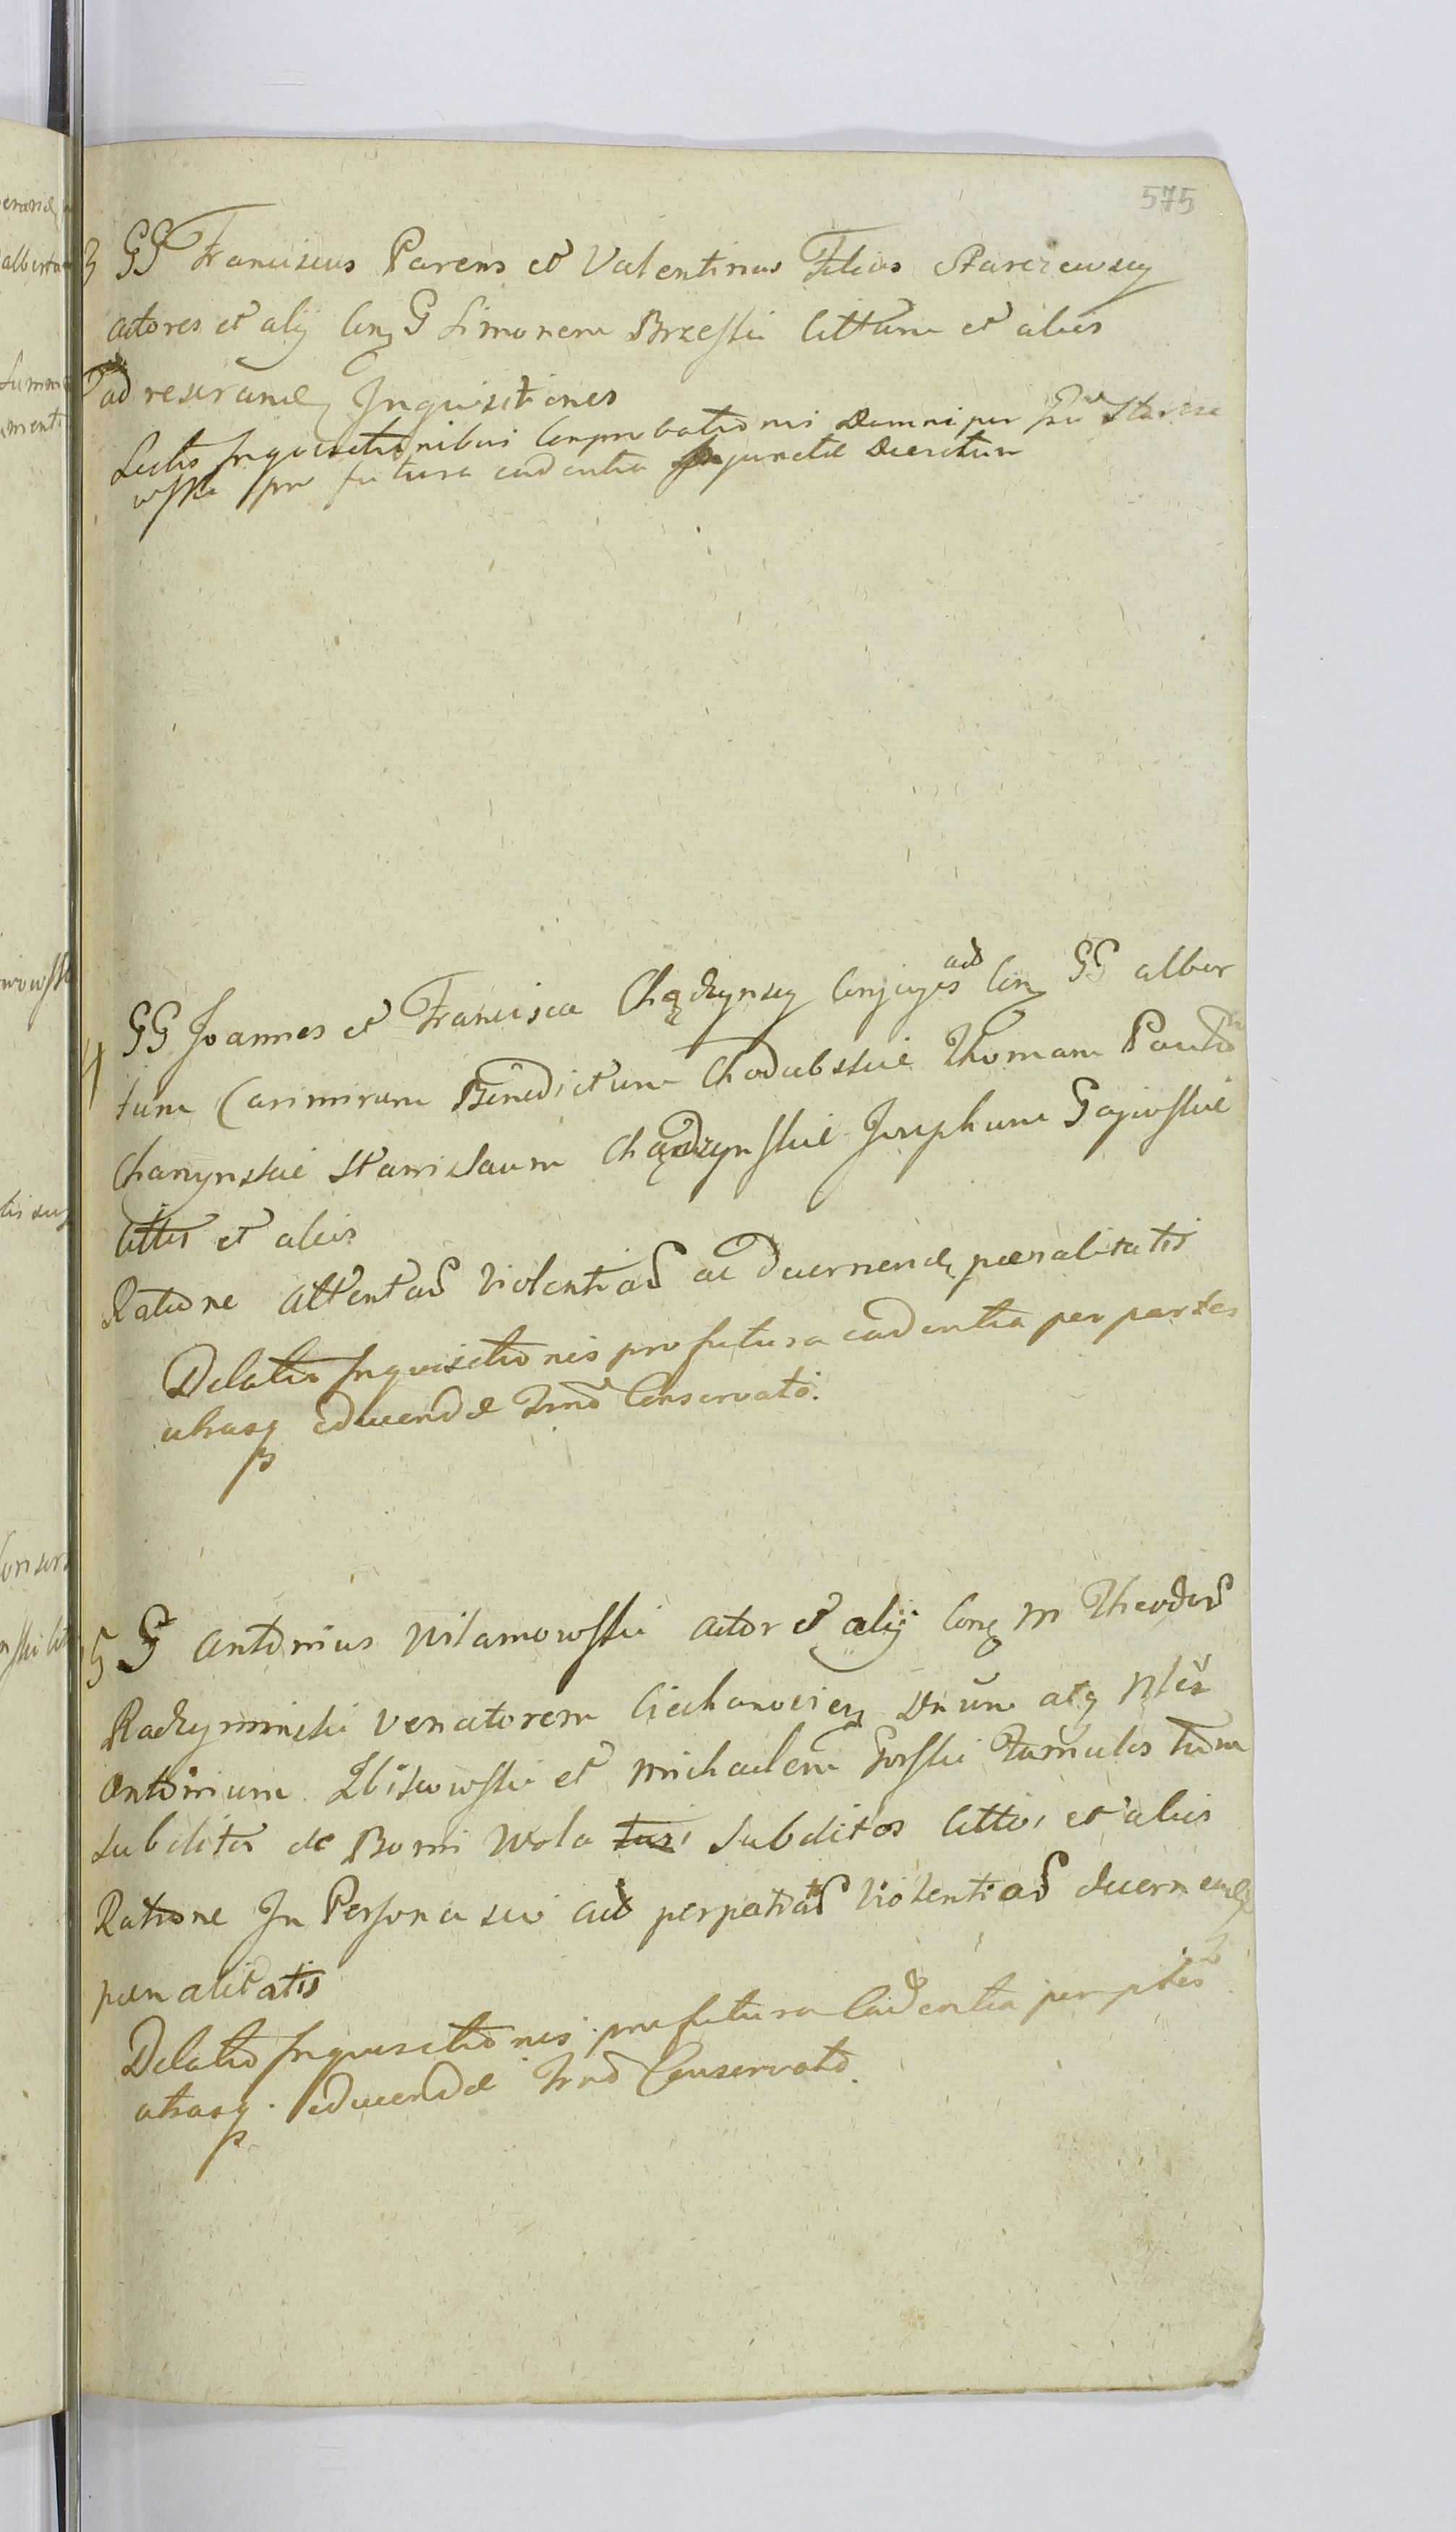 575
3 GG Franciscus Parens et Valentinus Filius Starczewscy
actores et alij Con G Simonem Brzeski Cittum et aliis
ad reserand Inquisitiones
Lectis Inquisitionibus Comprobationis Damni per Starcze
wski pro futura cadentia Injunctae Decretum
4 GG Joannes et Francisca Chądzynscy Conjuges act Con GG alber
tum Casimirum Benedictum Chodubskie Thomam
Charzynskie Stanislaum Chądzynskie Josephum Gajewskie
Cittos et aliis
Ratione attentas violentias ac decernend pœnalitatis
Delatio Inquisitionis pro futura cadentia per partes
utrasq educendae Trmo Conservato.
5 G Antonius Wilamowski actor et alij Con M Theodor
Radzyminski Venatorem Ciechanovien Dnum atq Nles
Antonium Zbikowski et Michaelem Gorski famulos tum
subditos de Borni Wola subditos Cittos et aliis
Ratione In Persona sui act perpetratas violentias decernend
pœnalitatis
Delatio Inquisitionis pro futura Cadentia per ptes
utrasq educendae Trmo Conservato.